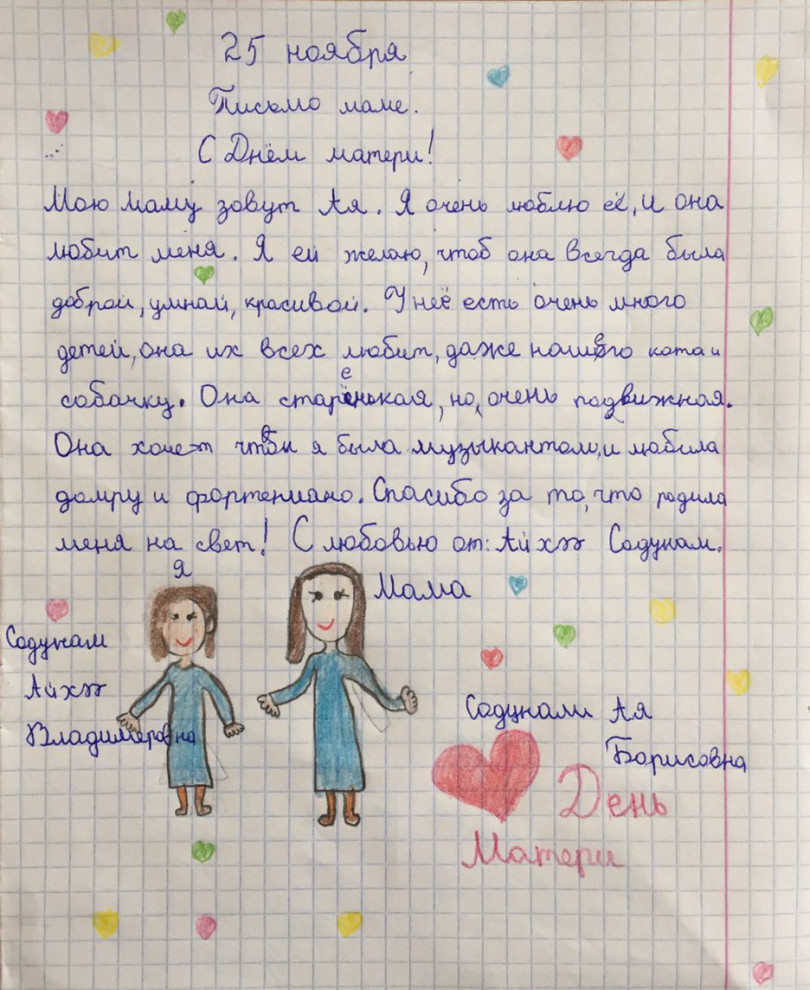 25 ноября
Письмо маме.
С Днём матери!
Мою маму зовут Ая. Я очень люблю её, и она
любит меня. Я ей желаю, чтоб она всегда была
доброй, умнай, красивой. У неё есть очень много
детей, она их всех любит, даже нашего кота и
собачку. Она старенькая, но, очень подвижная.
Она хочет чтоб я была музыкантом, и любила
домру и фортепиано. Спасибо за то, что родила
меня на свет! С любовью от: Содунам.
Я
Мама
Содунам
Владимеровна
Содунами Ая
Борисовна
День
Матери